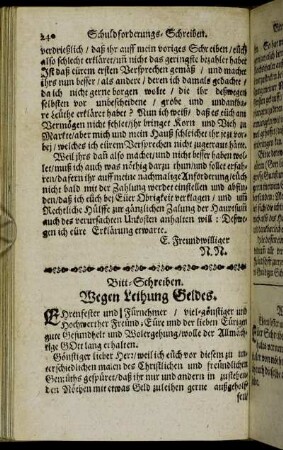 240 Schuldforderungs-Schreiben.
verdrießlich / daß ihr auff mein voriges Schreiben / eüch
also schlecht erkläret / uñ nicht das geringste bezahlet habet
Ist daß eürem ersten Versprechen gemäß / und machet
ihrs nun besser / als andere / deren ich damals gedachte /
da ich nicht gerne borgen wolte / die ihr deßwegen
selbsten vor unbescheidene / grobe und undankba-
re Leüthe erkläret habet? Nun ich weiß / daß es eüch am
Vermögen nicht fehlet / ihr bringet Korn und Vieh zu
Markte / aber mich und mein Hauß schleichet ihr jezt vor-
bej / welches ich eürem Versprechen nicht zugetraut hätte.
Weil ihrs dañ also machet / und nicht besser haben wol-
let / muß ich auch was nöthig darzu thun / und sollet erfah-
ren / dafern ihr auff meine nachmalige Anforderung / eüch
nicht bald mit der Zahlung werdet einstellen und abfin-
den / daß ich eüch bej Eürer Obrigkeit verklagen / und um
Rechtliche Hülffe zur gänzlichen Zalung der Hauptsum
auch des verursachten Unkosten anhalten will: Deßwe-
gen ich eüre Erklärung erwarte.
E. Freundwilliger
N. N.
Bitt-Schreiben.
Wegen Leihung Geldes.
EHrenfester und Fürnehmer / viel-günstiger und
Hochwerther Freund / Eüre und der lieben Eürigen
gute Gesundheit und Wolergehung / wolle der Allmäch-
tige GOtt lang erhalten.
Günstiger lieber Herr / weil ich eüch vor diesem zu un-
terschiedlichen malen des Christlichen und freündlichen
Gemüths gespüret / daß ihr nur und andern in zustehen-
den Nöthen mit etwas Geld zuleihen gerne außgeholf-
fen /